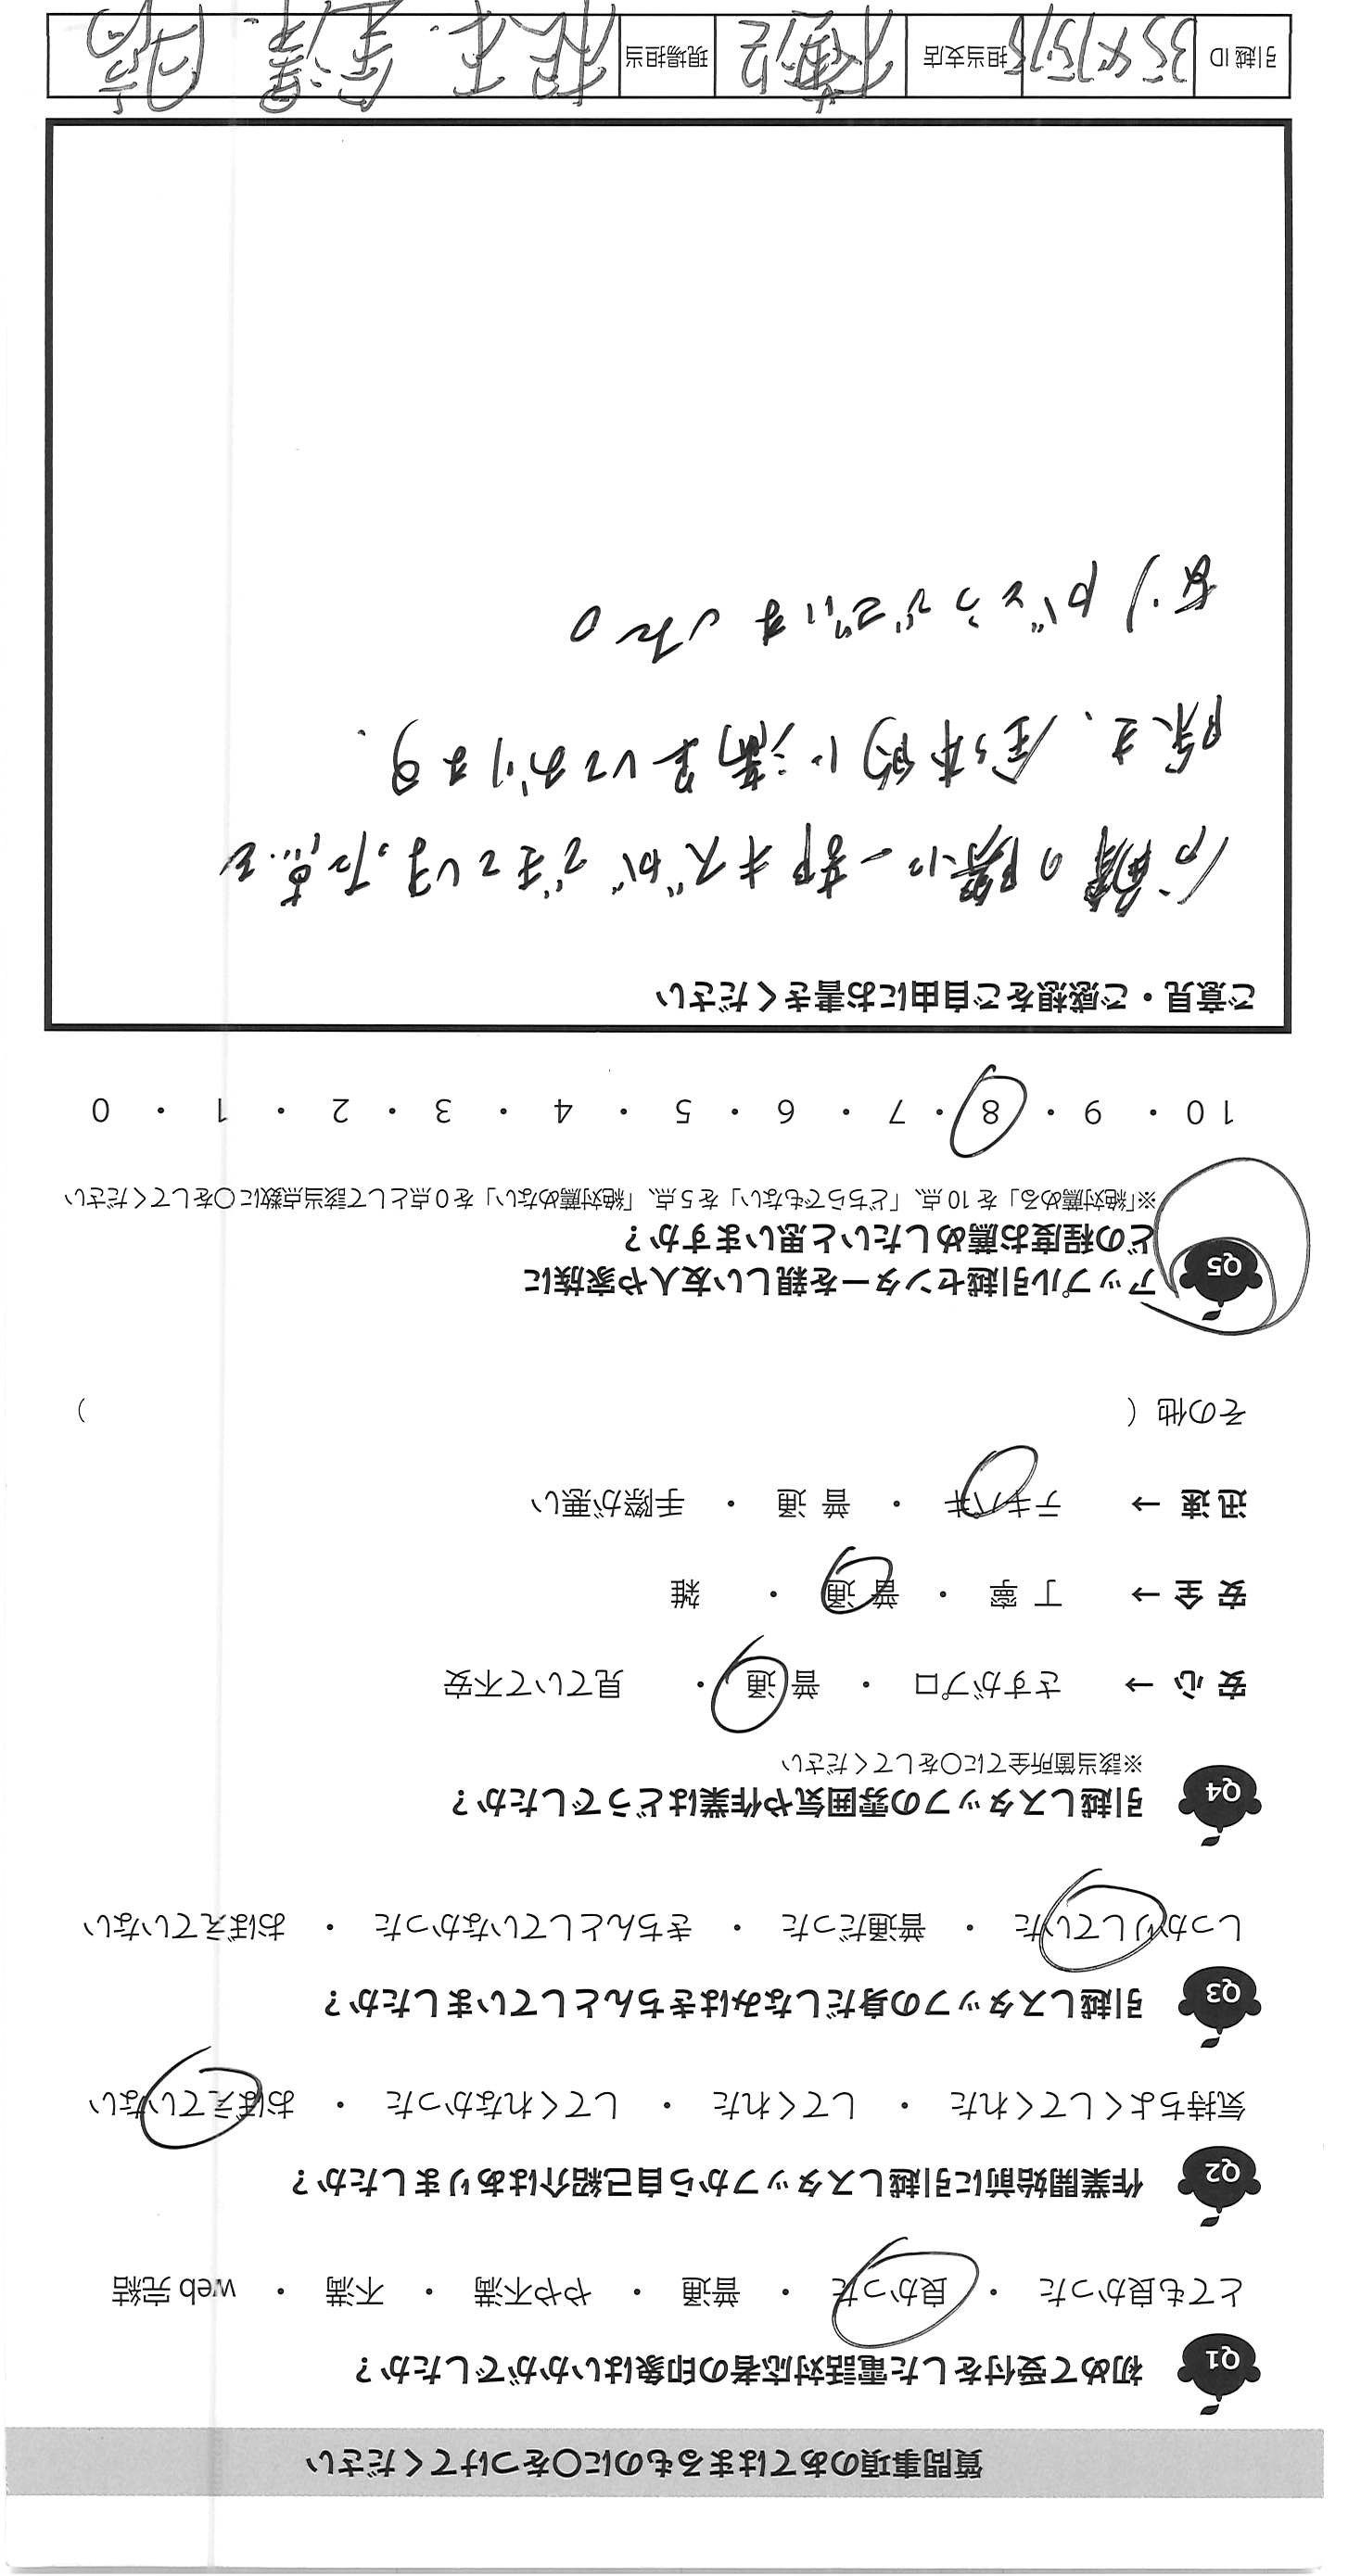 質問事項のあてはまるものに○をつけてください
Q1 初めて受付をした電話対応者の印象はいかがでしたか？
とても良かった ・ 良かった ・ 普通 ・ やや不満 ・ 不満 ・ web 完結
Q2 作業開始前に引越しスタッフから自己紹介はありましたか？
気持ちよくしてくれた ・ してくれた ・ してくれなかった ・ おぼえていない
Q3 引越しスタッフの身だしなみはきちんとしていましたか？
しっかりしていた ・ 普通だった ・ きちんとしていなかった ・ おぼえていない
Q4 引越しスタッフの雰囲気や作業はどうでしたか？
※該当箇所全てに○をしてください
安 心 → さすがプロ ・ 普 通 ・ 見ていて不安
安 全 → 丁 寧 ・ 普 通 ・ 雑
迅 速 → テキパキ ・ 普 通 ・ 手際が悪い
その他（ ）
Q5 アップル引越センターを親しい友人や家族に
どの程度お薦めしたいと思いますか？
※「絶対薦める」を 10 点、「どちらでもない」を 5 点、「絶対薦めない」を 0 点として該当点数に○をしてください
10 ・ 9 ・ 8 ・ 7 ・ 6 ・ 5 ・ 4 ・ 3 ・ 2 ・ 1 ・ 0
ご意見・ご感想をご自由にお書きください
作業の際に一部キズができてしまった点を
除き、全体的に満足しております。
ありがとうございました。
引越 ID 担当支店 現場担当 根本. 金澤.